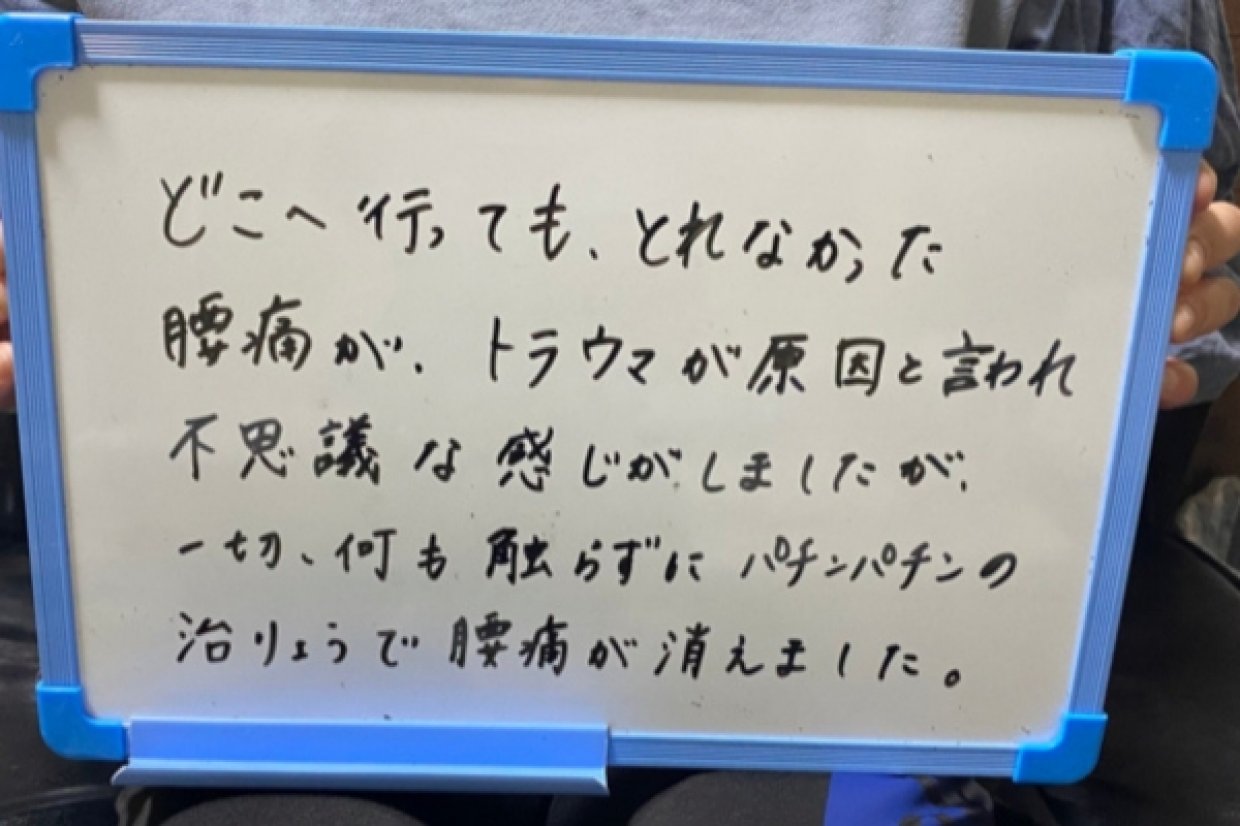 どこへ行っても、とれなかった
腰痛が、トラウマが原因と言われ
不思議な感じがしましたが、
一切、何も触らずにパチンパチンの
治りょうで腰痛が消えました。